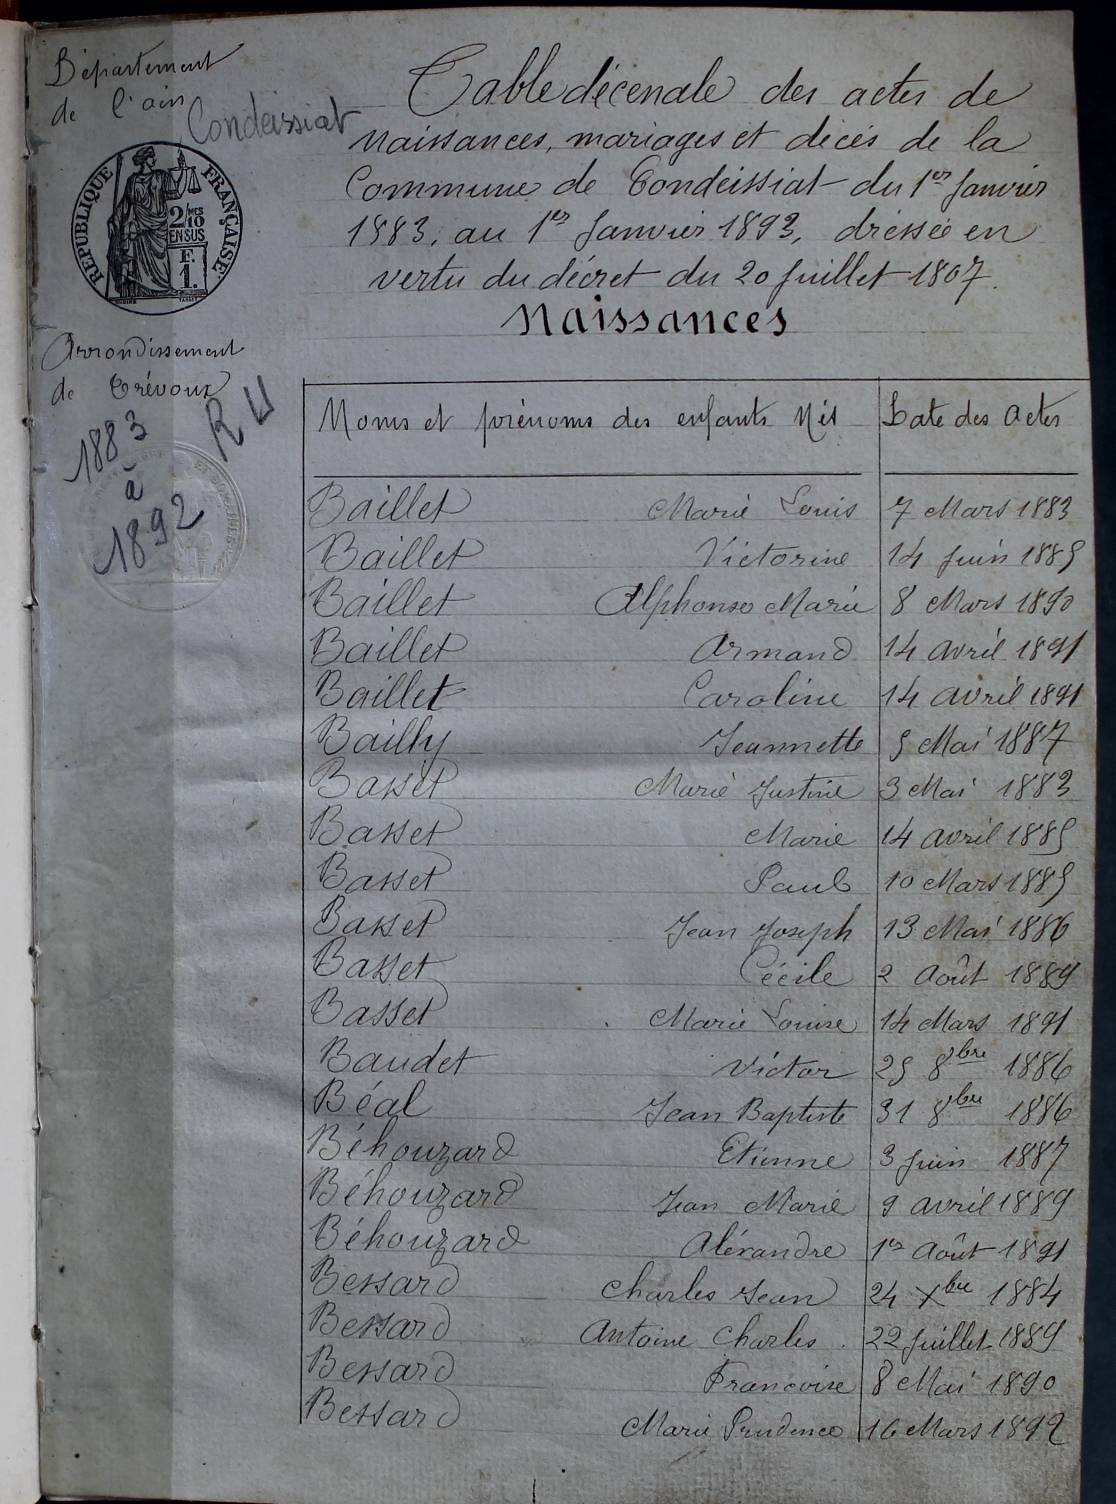 Département
de l'ain
Condeissiat
RÉPUBLIQUE FRANÇAISE
2/10 MES
EN SUS
F.
1.
Arrondissement
de Trévoux
RU
1883
à
1892
Table décenale des actes de
naissances, mariages et décés de la
Commune de Condeissiat du 1er Janvier
1883, au 1er Janvier 1893, dréssée en
vertu du décret du 20 Juillet 1807.
Naissances
Noms et prénoms des enfants Nés Date des actes
Baillet Marie Louis 7 Mars 1883
Baillet Victorine 14 Juin 1885
Baillet Alphonse Marie 8 Mars 1890
Baillet Armand 14 avril 1891
Baillet Caroline 14 avril 1891
Bailly Jeannette 5 Mai 1887
Basset Marie Justine 3 Mai 1883
Basset Marie 14 avril 1885
Basset Paul 10 Mars 1885
Basset Jean Joseph 13 Mai 1886
Basset Cécile 2 Août 1889
Basset Marie Louise 14 Mars 1891
Baudet Victor 25 8bre 1886
Béal Jean Baptiste 31 8bre 1886
Béhouzard Etienne 3 Juin 1887
Béhouzard Jean Marie 9 avril 1889
Béhouzard Aléxandre 1er Août 1891
Bessard Charles Jean 24 Xbre 1884
Bessard Antoine Charles 22 Juillet 1889
Bessard Francoise 8 Mai 1890
Bessard Marie Prudence 16 Mars 1892